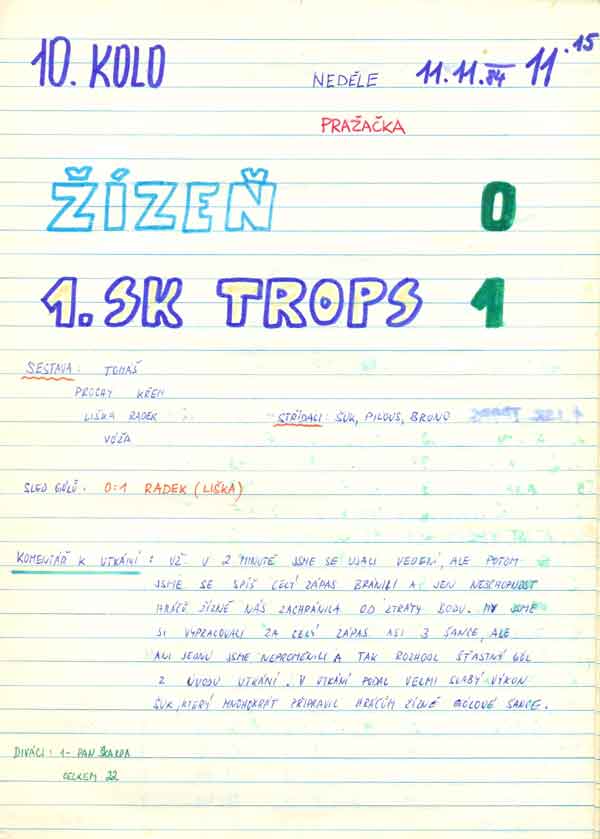 10. KOLO NEDĚLE 11.11.84 11.15
PRAŽAČKA
ŽÍZEŇ 0
1. SK TROPS 1
SESTAVA: TOMÁŠ
PROCHY KŘEN
LIŠKA RADEK STŘÍDALI: SUK, PILOUS, BRUNO
VÓŽA
SLED GÓLŮ. 0:1 RADEK (LIŠKA)
KOMENTÁŘ K UTKÁNÍ: UŽ V 2 MINUTĚ JSME SE UJALI VEDENÍ, ALE POTOM
JSME SE SPÍŠ CELÝ ZÁPAS BRÁNILI A JEN NESCHOPNOST
HRÁČŮ ŽÍZNĚ NÁS ZACHRÁNILA OD ZTRÁTY BODU. MY JSME
SI VYPRACOVALI ZA CELÝ ZÁPAS ASI 3 ŠANCE, ALE
ANI JEDNU JSME NEPROMĚNILI A TAK ROZHODL ŠŤASTNÝ GÓL
Z ÚVODU UTKÁNÍ. V UTKÁNÍ PODAL VELMI SLABÝ VÝKON
SUK, KTERÝ MNOHOKRÁT PŘIPRAVIL HRÁČŮM ŽÍZNĚ GÓLOVÉ ŠANCE.
DIVÁCI: 1- PAN ŠKARDA
CELKEM 22